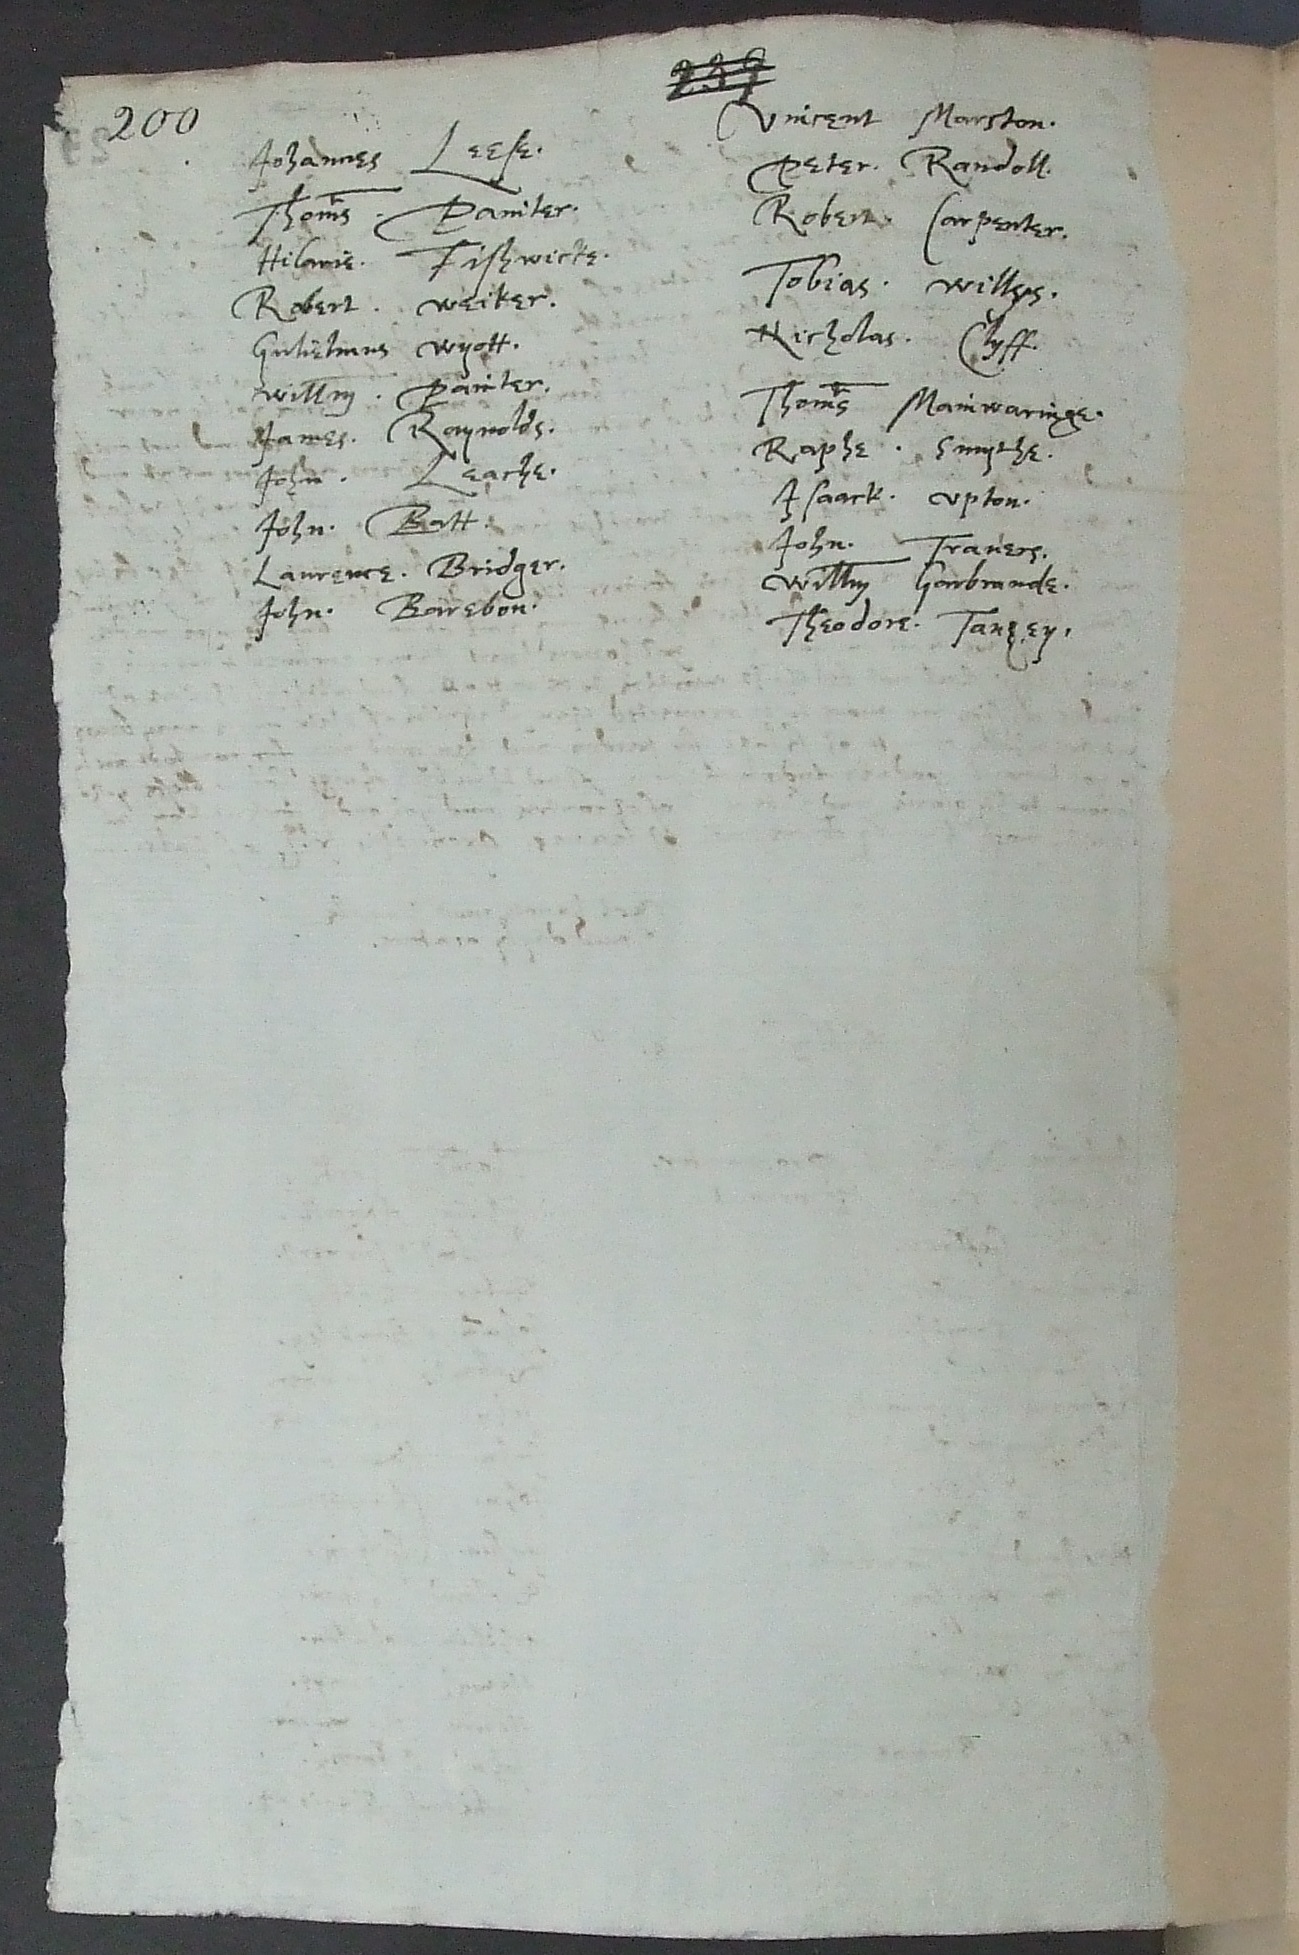 200
Johannes Leese.
Thoms. Painter.
Hilarie. Fishwicke.
Robert. weiker.
Gulielmus wyott.
Willm. Painter.
James. Raynolds.
John. Leache.
John. Batt.
Laurence. Bridger.
John. Barebon.
Vnicent Marston.
Peter. Randoll.
Robert. Carpenter.
Tobias. willys.
Nicholas. Clyff.
Thoms Mainwaringe.
Raphe. Smythe.
Isaack. vpton.
John. Trauers.
Willm Garbrande.
Theodore. Tanzey.